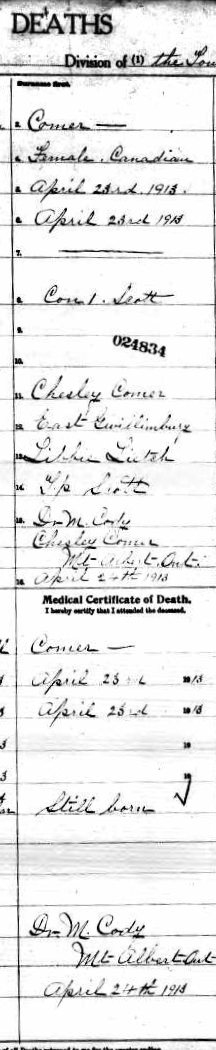 DEATHS
Division of (1) the Tow
Surname first.
2. Comer —
4. Female. Canadian
5. April 23rd. 1913.
6. April 23rd 1913
7.
8. Con 1. Scott
9.
024834
10.
11. Chesley Comer
12. East Gwillimbury
13. Libbie Leitch
14. Tp Scott
15. Dr M. Cody
Chesley Comer
Mt Albert. Ont.
16. April 24th 1913
Medical Certificate of Death.
I hereby certify that I attended the deceased.
Comer —
April 23rd 1913
April 23rd 1913
19
19
Still born ✓
Dr M. Cody
Mt Albert Ont
April 24th 1913